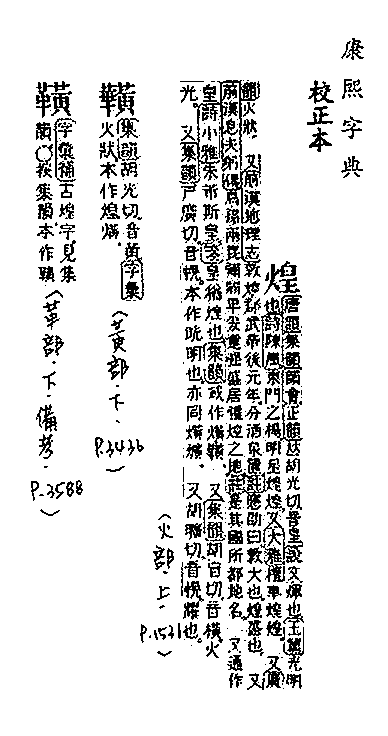 康熙字典
校正本
煌
唐韻集韻韻會正韻𠀤胡光切音皇說文煇也玉篇光明
也詩陳風東門之楊明星煌煌又大雅檀車煌煌又廣
韻火狀又前漢地理志敦煌郡武帝後元年分酒泉置註應劭曰敦大也煌盛也又
前漢息夫躬傳爲孫兩昆彌弱卑爰疐強盛居彊煌之地註是其國所都地名又通作
皇詩小雅朱芾斯皇箋皇猶煌也集韻或作爌又集韻胡盲切音橫火
光又集韻戶廣切音幌本作晄明也亦同爌又胡曠切音㨪耀也
(火部.上.P.1521)
䵃
集韻胡光切音黃字彙
火狀本作煌
(黃部.下.P.3436)
字彙補古煌字見集
韻○按集韻本作
(革部.下.備考.P.3588)